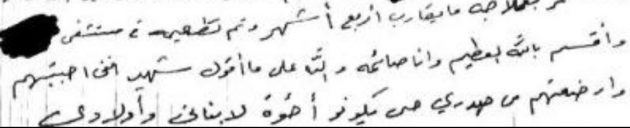 بعلاجه ما يقارب أربع أشهر وتم تطعيمه في مستشفى
وأقسم بالله العظيم وأنا صائمه والله على ما أقول شهيد انني احببتهم
وارضعتهم من صدري حتى يكونو أخوة لابنائي وأولادي